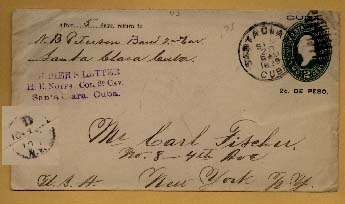 CUBA
After 5 days, return to
N. B. Peterson Band 2nd Cav
Santa Clara Cuba.
SOLDIER'S LETTER
Santa Clara, Cuba.
SANTA CLARA
CUBA
2c. DE PESO.
D
Mr Carl Fischer
No. 8 - 4th Ave
New York N.Y.
U.S.A